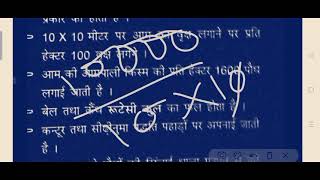 प्रकार का होता है ।
➢ 10 X 10 मीटर पर आम का वृक्ष लगाने पर प्रति
हेक्टर 100 वृक्ष लगेंगे ।
➢ आम की आम्रपाली किस्म की प्रति हेक्टर 1600 पौध
लगाई जाती है ।
➢ बेल तथा कैंथ रूटेसी कुल का फल होता है ।
➢ कन्टूर तथा सीढ़ीनुमा पद्धति पहाड़ों पर अपनाई जाती
है ।
10 X 10